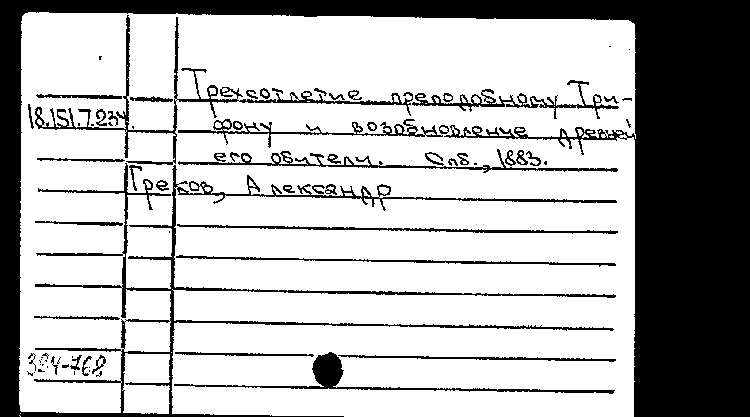 Трехсотлетие преподобному Три-
18.151.7.234.
фону и возобновление древней
его обители. Спб., 1883.
Греков, Александр
394-768